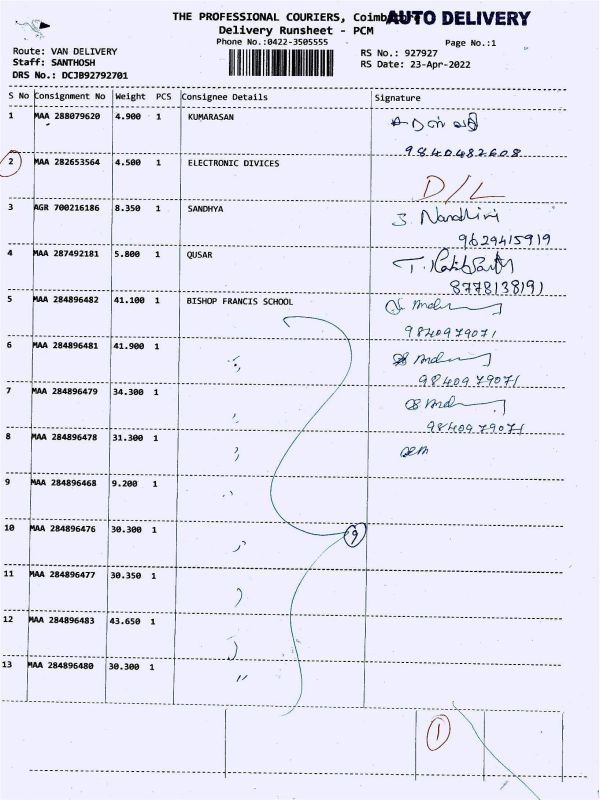 THE PROFESSIONAL COURIERS, Coimbatore AUTO DELIVERY
Delivery Runsheet - PCM
Phone No.:0422-3505555 Page No.:1
Route: VAN DELIVERY RS No.: 927927
Staff: SANTHOSH RS Date: 23-Apr-2022
DRS No.: DCJB92792701
S No Consignment No Weight PCS Consignee Details Signature
1 MAA 288079620 4.900 1 KUMARASAN
9840482608
2 MAA 282653564 4.500 1 ELECTRONIC DIVICES D/L
3 AGR 700216186 8.350 1 SANDHYA S. Nandhini
9629415919
4 MAA 287492181 5.800 1 QUSAR
8778138191
5 MAA 284896482 41.100 1 BISHOP FRANCIS SCHOOL
9840979071
6 MAA 284896481 41.900 1 "
9840979071
7 MAA 284896479 34.300 1 "
9840979071
8 MAA 284896478 31.300 1 "
9 MAA 284896468 9.200 1 "
10 MAA 284896476 30.300 1 " 9
11 MAA 284896477 30.350 1 "
12 MAA 284896483 43.650 1 "
13 MAA 284896480 30.300 1 "
1